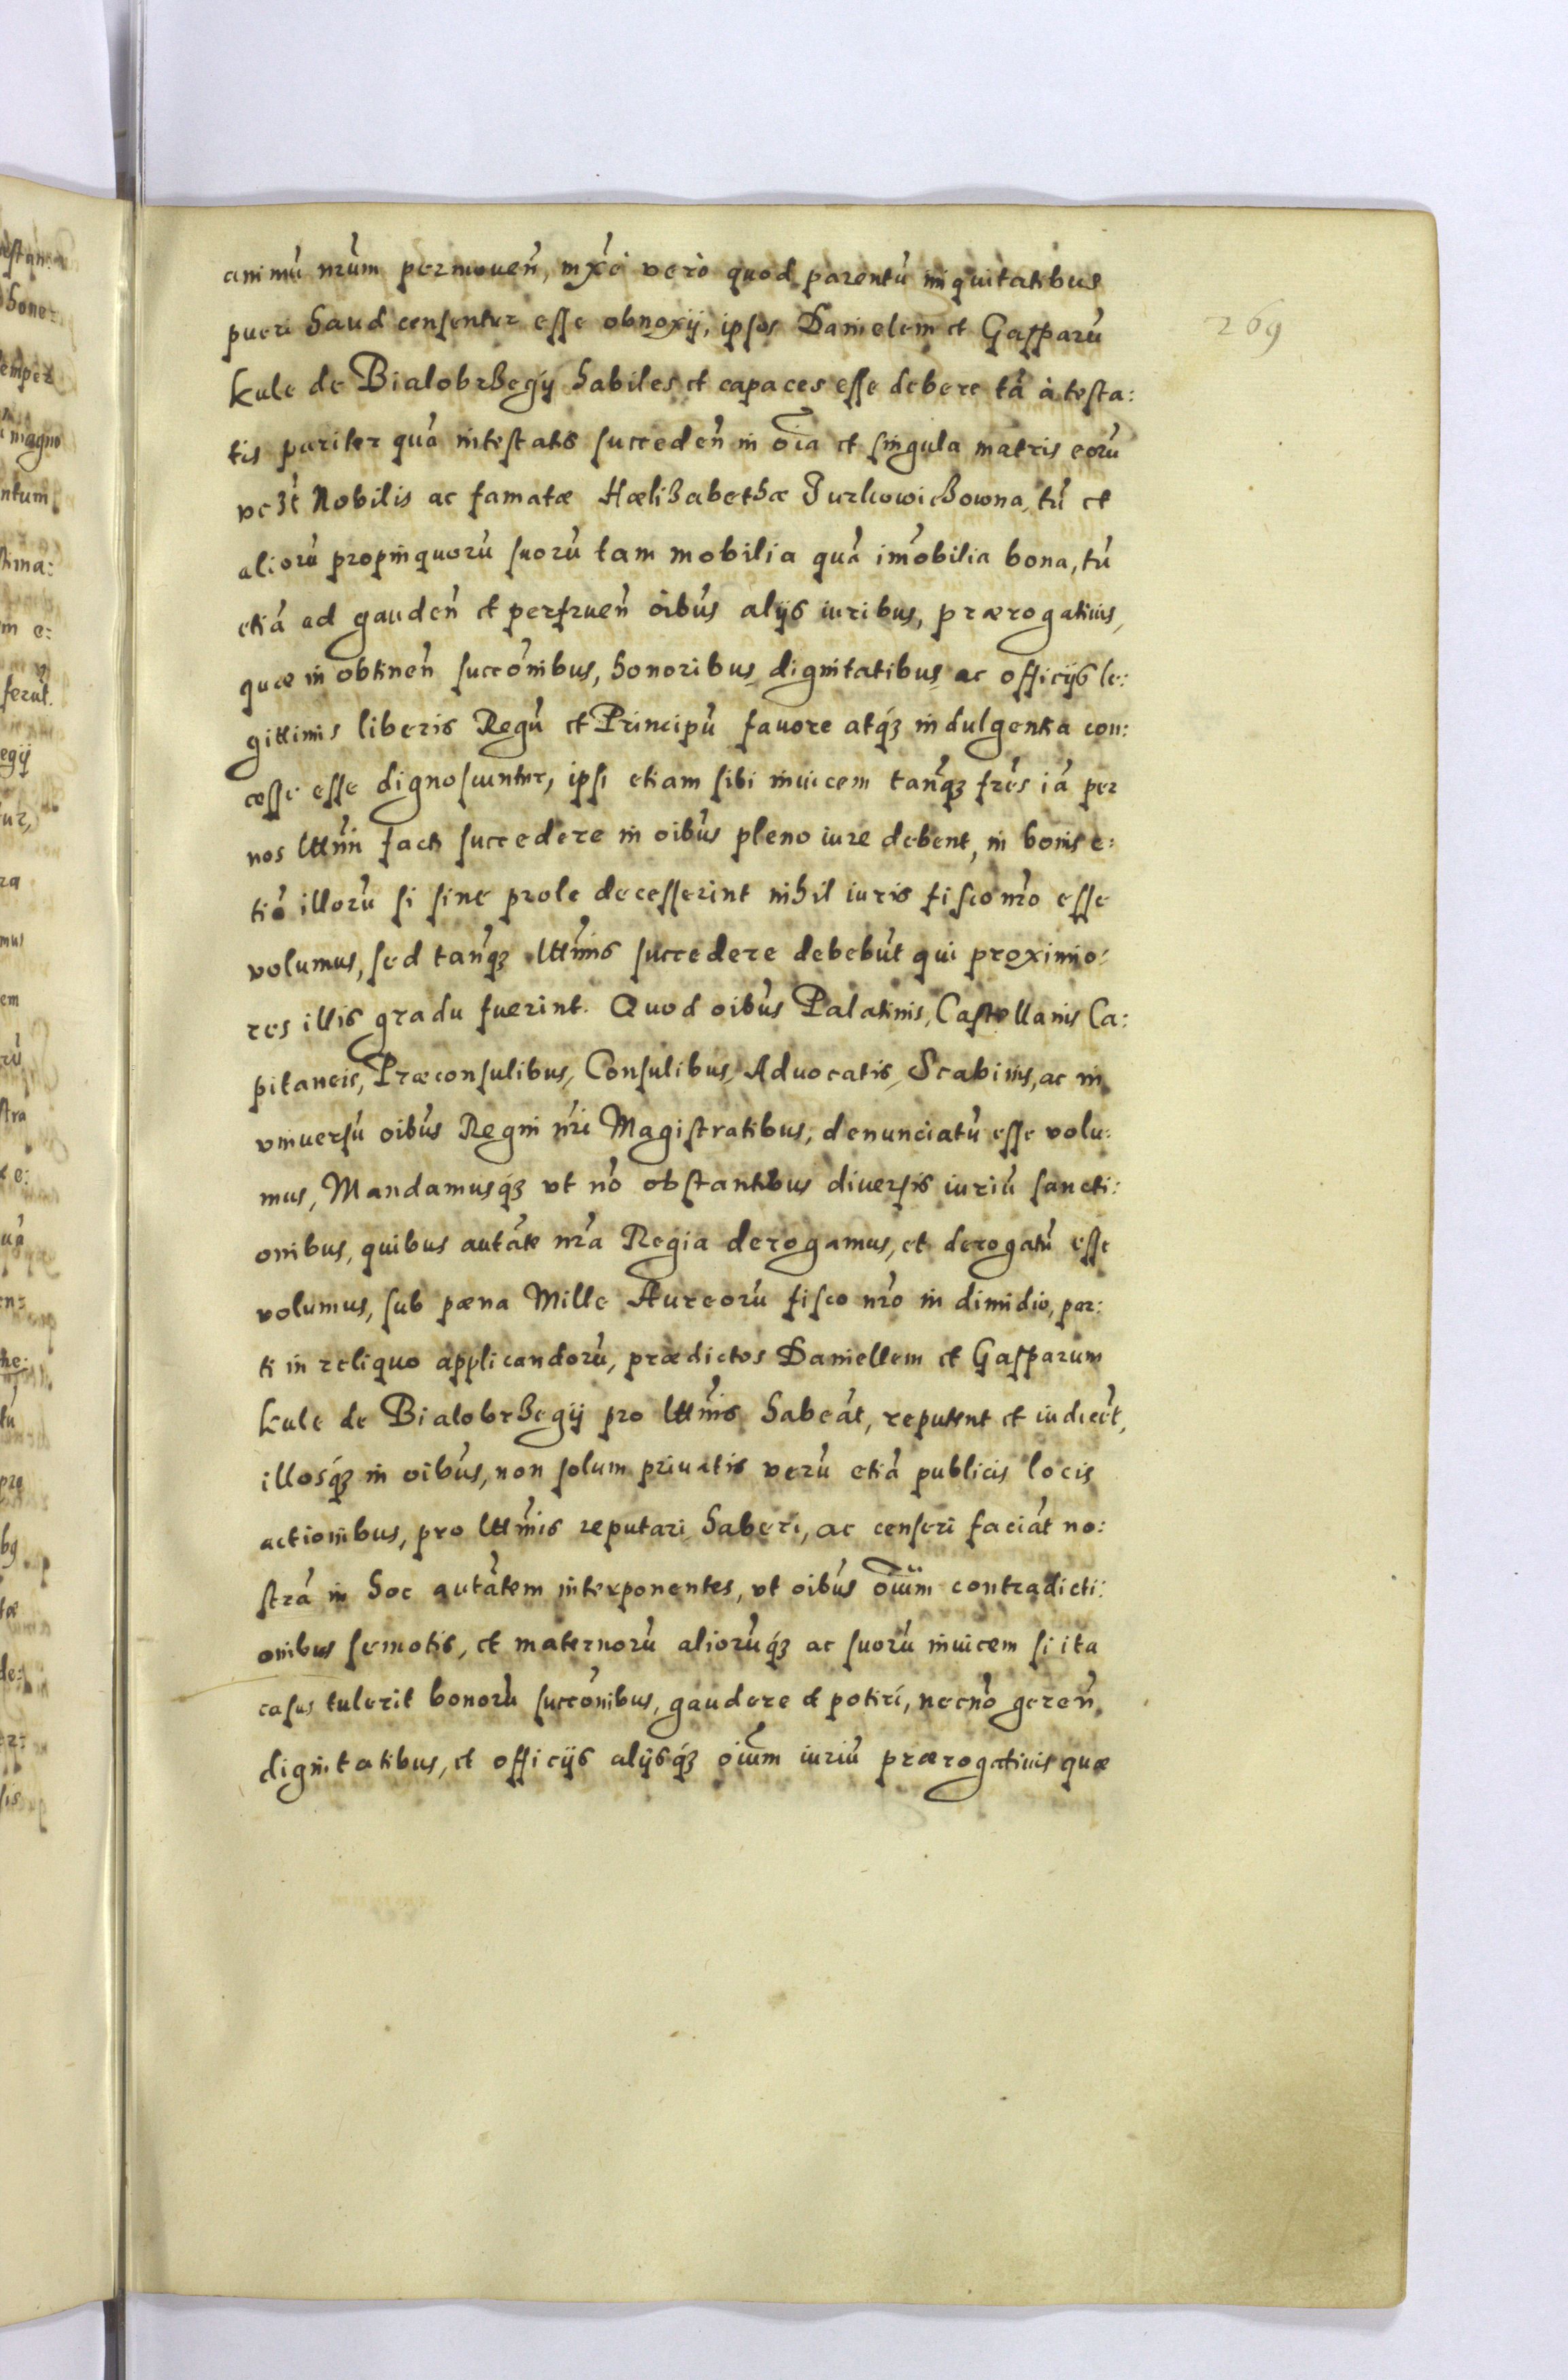 animũ nr̃um permoveñ, mx̃e vero quod parentũ iniquitatibus
pueri haud censentur esse obnoxij, ipsos Danielem et Gasparũ
kule de Bialobrzegij habiles et capaces esse debere tã à testa:
tis pariter quã intestatis succedeñ in oĩa et singula matris eorũ
vezt Nobilis ac famatæ Hælizabethæ Jurkowichowna, tũ et
aliorũ propinquorũ suorũ tam mobilia quã im̃obilia bona, tũ
etiã ad gaudeñ et perfrueñ oĩbus alijs iuribus, prærogatiuis,
quæ in obtineñ succõnibus, honoribus, dignitatibus ac officijs le:
gittimis liberis Regũ et Principũ favore atq́ꝫ indulgentia con:
cesse esse dignoscuntur, ipsi etiam sibi inuicem tanq́ꝫ fr̃es iã per
nos lttĩmi facti succedere in oĩbus pleno iure debent, in bonis e:
tiã illorũ si sine prole decesserint nihil iuris fisco nr̃o esse
volumus, sed tanq́ꝫ lttĩmis succedere debebũt qui proximio:
res illis gradu fuerint. Quod oĩbus Palatinis, Castellanis Ca:
pitaneis, Præconsulibus, Consulibus, Aduocatis, Scabinis, ac in
vniuersũ oĩbus Regni nr̃i Magistratibus, denunciatũ esse volu:
mus, Mandamusq́ꝫ vt nõ obstantibus diuersis iuriũ sancti:
onibus, quibus autãte nr̃a Regia derogamus, et derogatũ esse
volumus, sub pæna Mille Aureorũ fisco nr̃o in dimidio, par:
ti in reliquo applicandorũ, prædictos Daniellem et Gasparum
kule de Bialobrzegij pro lttĩmis habeãt, reputent et iudicẽt,
illosq́ꝫ in oĩbus, non solum priuatis verũ etiã publicis locis
actionibus, pro lttĩmis reputari haberi, ac censeri faciãt no:
strã in hoc autãtem interponentes, vt oĩbus oĩum contradicti:
onibus semotis, et maternorũ aliorũq́ꝫ ac suorũ inuicem si ita
casus tulerit bonorũ succõnibus, gaudere et potiri, necnõ gereñ
dignitatibus, et officijs alijsq́ꝫ oĩum iuriũ prærogatiuis quæ
269